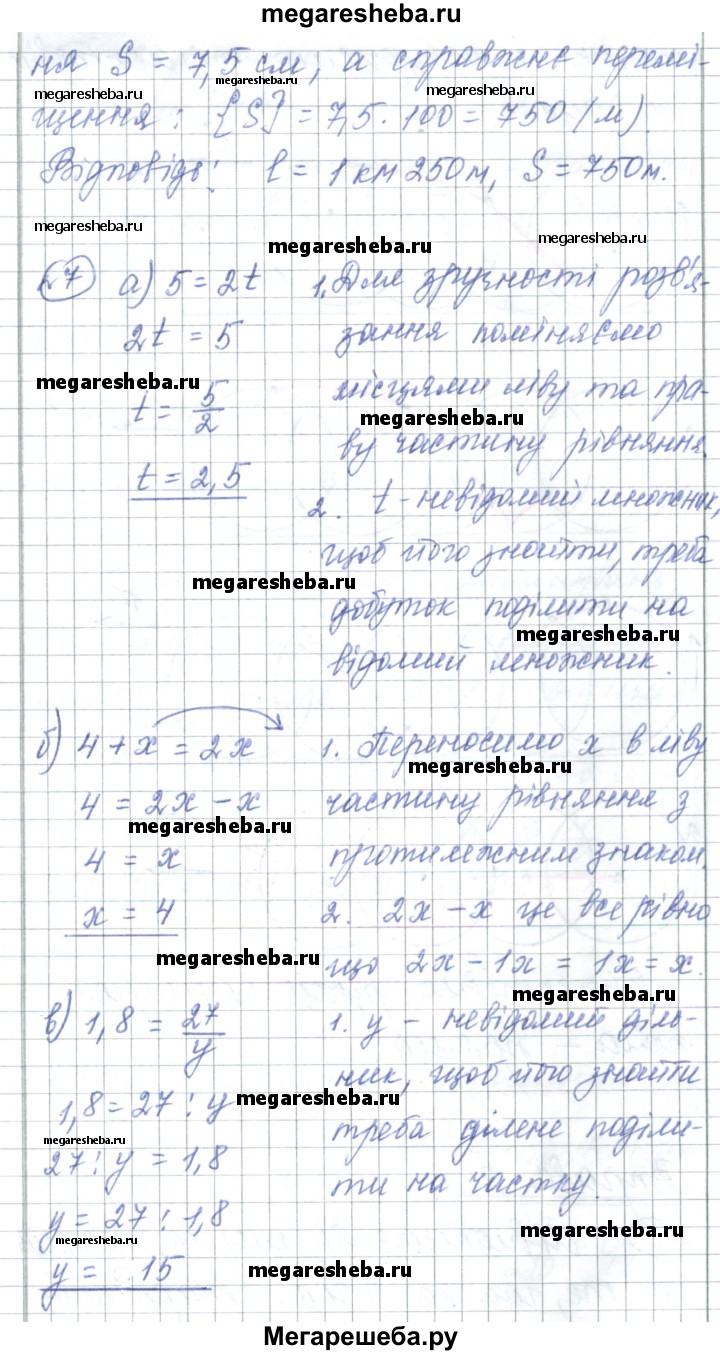 megaresheba.ru
ня S = 7,5 см, а справжнє перемі-
megaresheba.ru
megaresheba.ru
megaresheba.ru
щення: [S] = 7,5 · 100 = 750 (м)
Відповідь: l = 1 км 250м, S = 750м.
megaresheba.ru
megaresheba.ru
7 а) 5 = 2t
2t = 5
megaresheba.ru
t = 5/2
t = 2,5
1. Для зручності розв'я-
зання поміняємо
місцями ліву та пра-
megaresheba.ru
ву частину рівняння.
2. t - невідомий множник,
щоб його знайти, треба
megaresheba.ru
добуток поділити на
megaresheba.ru
відомий множник.
б) 4 + x = 2x
4 = 2x - x
megaresheba.ru
4 = x
x = 4
megaresheba.ru
1. Переносимо x в ліву
megaresheba.ru
частину рівняння з
протилежним знаком.
2. 2x - x це все рівно
що 2x - 1x = 1x = x.
megaresheba.ru
в) 1,8 = 27/y
1,8 = 27 : y
megaresheba.ru
megaresheba.ru
27 : y = 1,8
y = 27 : 1,8
megaresheba.ru
y = 15
megaresheba.ru
1. y - невідомий діль-
ник, щоб його знайти
треба ділене поділи-
ти на частку.
megaresheba.ru
Мегарешеба.ру